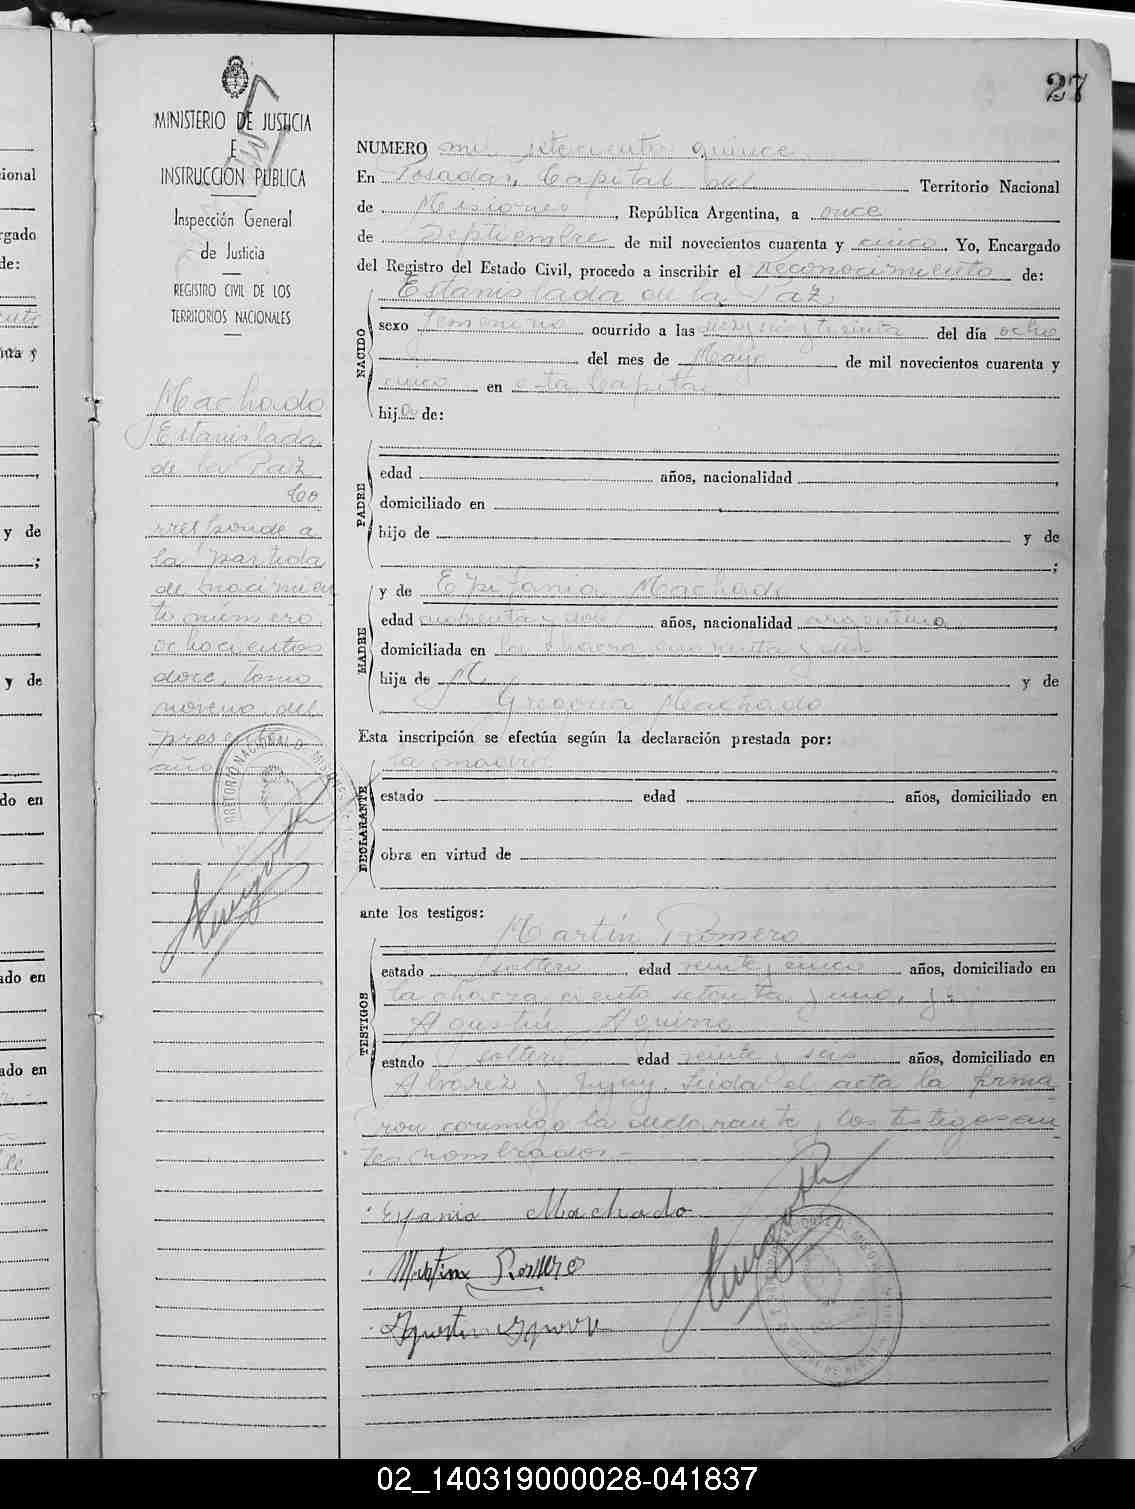 27
MINISTERIO DE JUSTICIA
E
INSTRUCCIÓN PÚBLICA
Inspección General
de Justicia
REGISTRO CIVIL DE LOS
TERRITORIOS NACIONALES
Machado
Estanislada
de la Paz
Co
rresponde a
la partida
de nacimien
to número
ochocientos
doce, tomo
noveno del
presente
año
NUMERO mil setecientos quince
En Posadas, Capital del Territorio Nacional
de Misiones, República Argentina, a once
de Septiembre de mil novecientos cuarenta y cinco. Yo, Encargado
del Registro del Estado Civil, procedo a inscribir el Reconocimiento de:
NACIDO
Estanislada de la Paz,
sexo femenino ocurrido a las y treinta del día ocho
del mes de Mayo de mil novecientos cuarenta y
cinco en esta Capital
hija de:
PADRE
edad años, nacionalidad ,
domiciliado en
hijo de y de
;
MADRE
y de Epifania Machado
edad y dos años, nacionalidad argentina,
domiciliada en la chacra cuarenta y dos
hija de y de
Gregoria Machado
Esta inscripción se efectúa según la declaración prestada por:
DECLARANTE
la madre
estado edad años, domiciliado en
obra en virtud de
ante los testigos:
TESTIGOS
Martín Romero
estado soltero edad veinte y cinco años, domiciliado en
la chacra ciento setenta y uno, y:
Agustín Aguirre
estado soltero edad veinte y seis años, domiciliado en
Alvarez y Jujuy. Leída el acta la firma
ron conmigo la declarante y los testigos an
tes nombrados.-
Machado
Martin Romero
Agustin
02_140319000028-041837